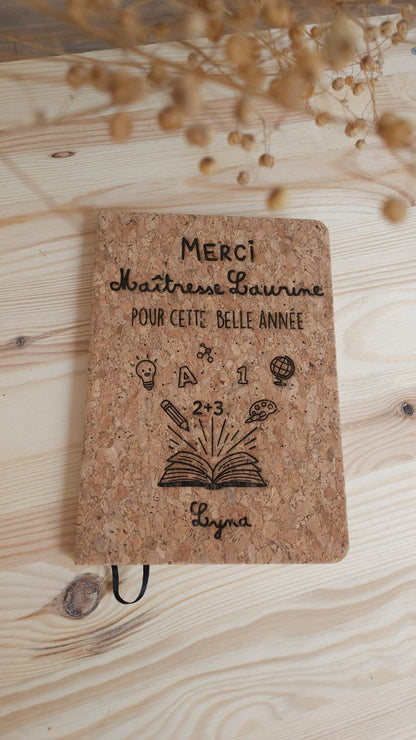 MERCI
Maîtresse Laurine
POUR CETTE BELLE ANNÉE
A 1
2+3
Lyna